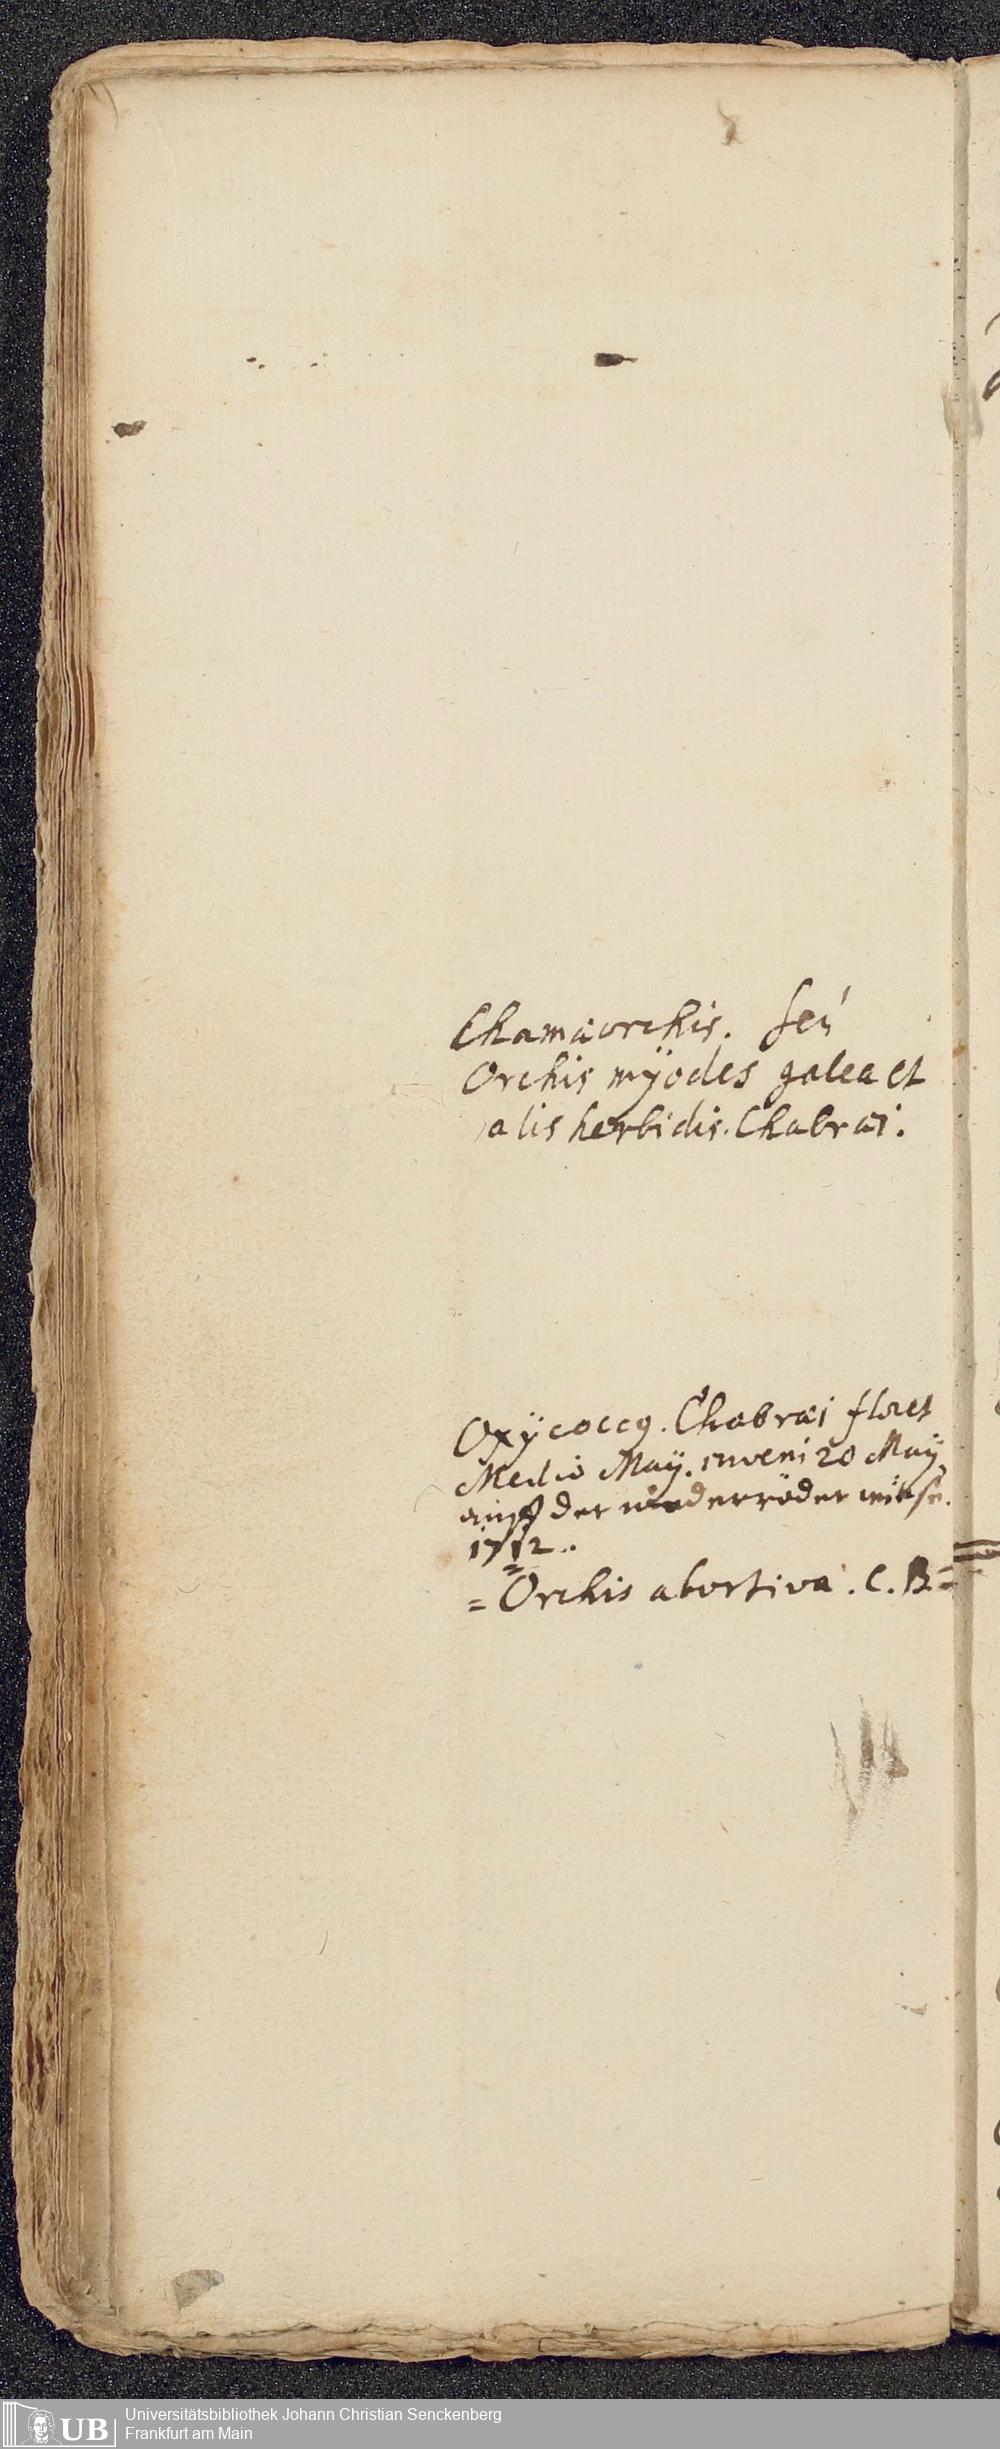 Chamæorchis. seu
Orchis mÿodes galea et
alis herbidis. Chabræi.
Oxÿcoccꝰ. Chabræi floret
Medio Maÿ. inveni 20 Maÿ
auff der niederröder wiese.
1712..
= Orchis abortiva. C. B. =
UB
Universitätsbibliothek Johann Christian Senckenberg
Frankfurt am Main